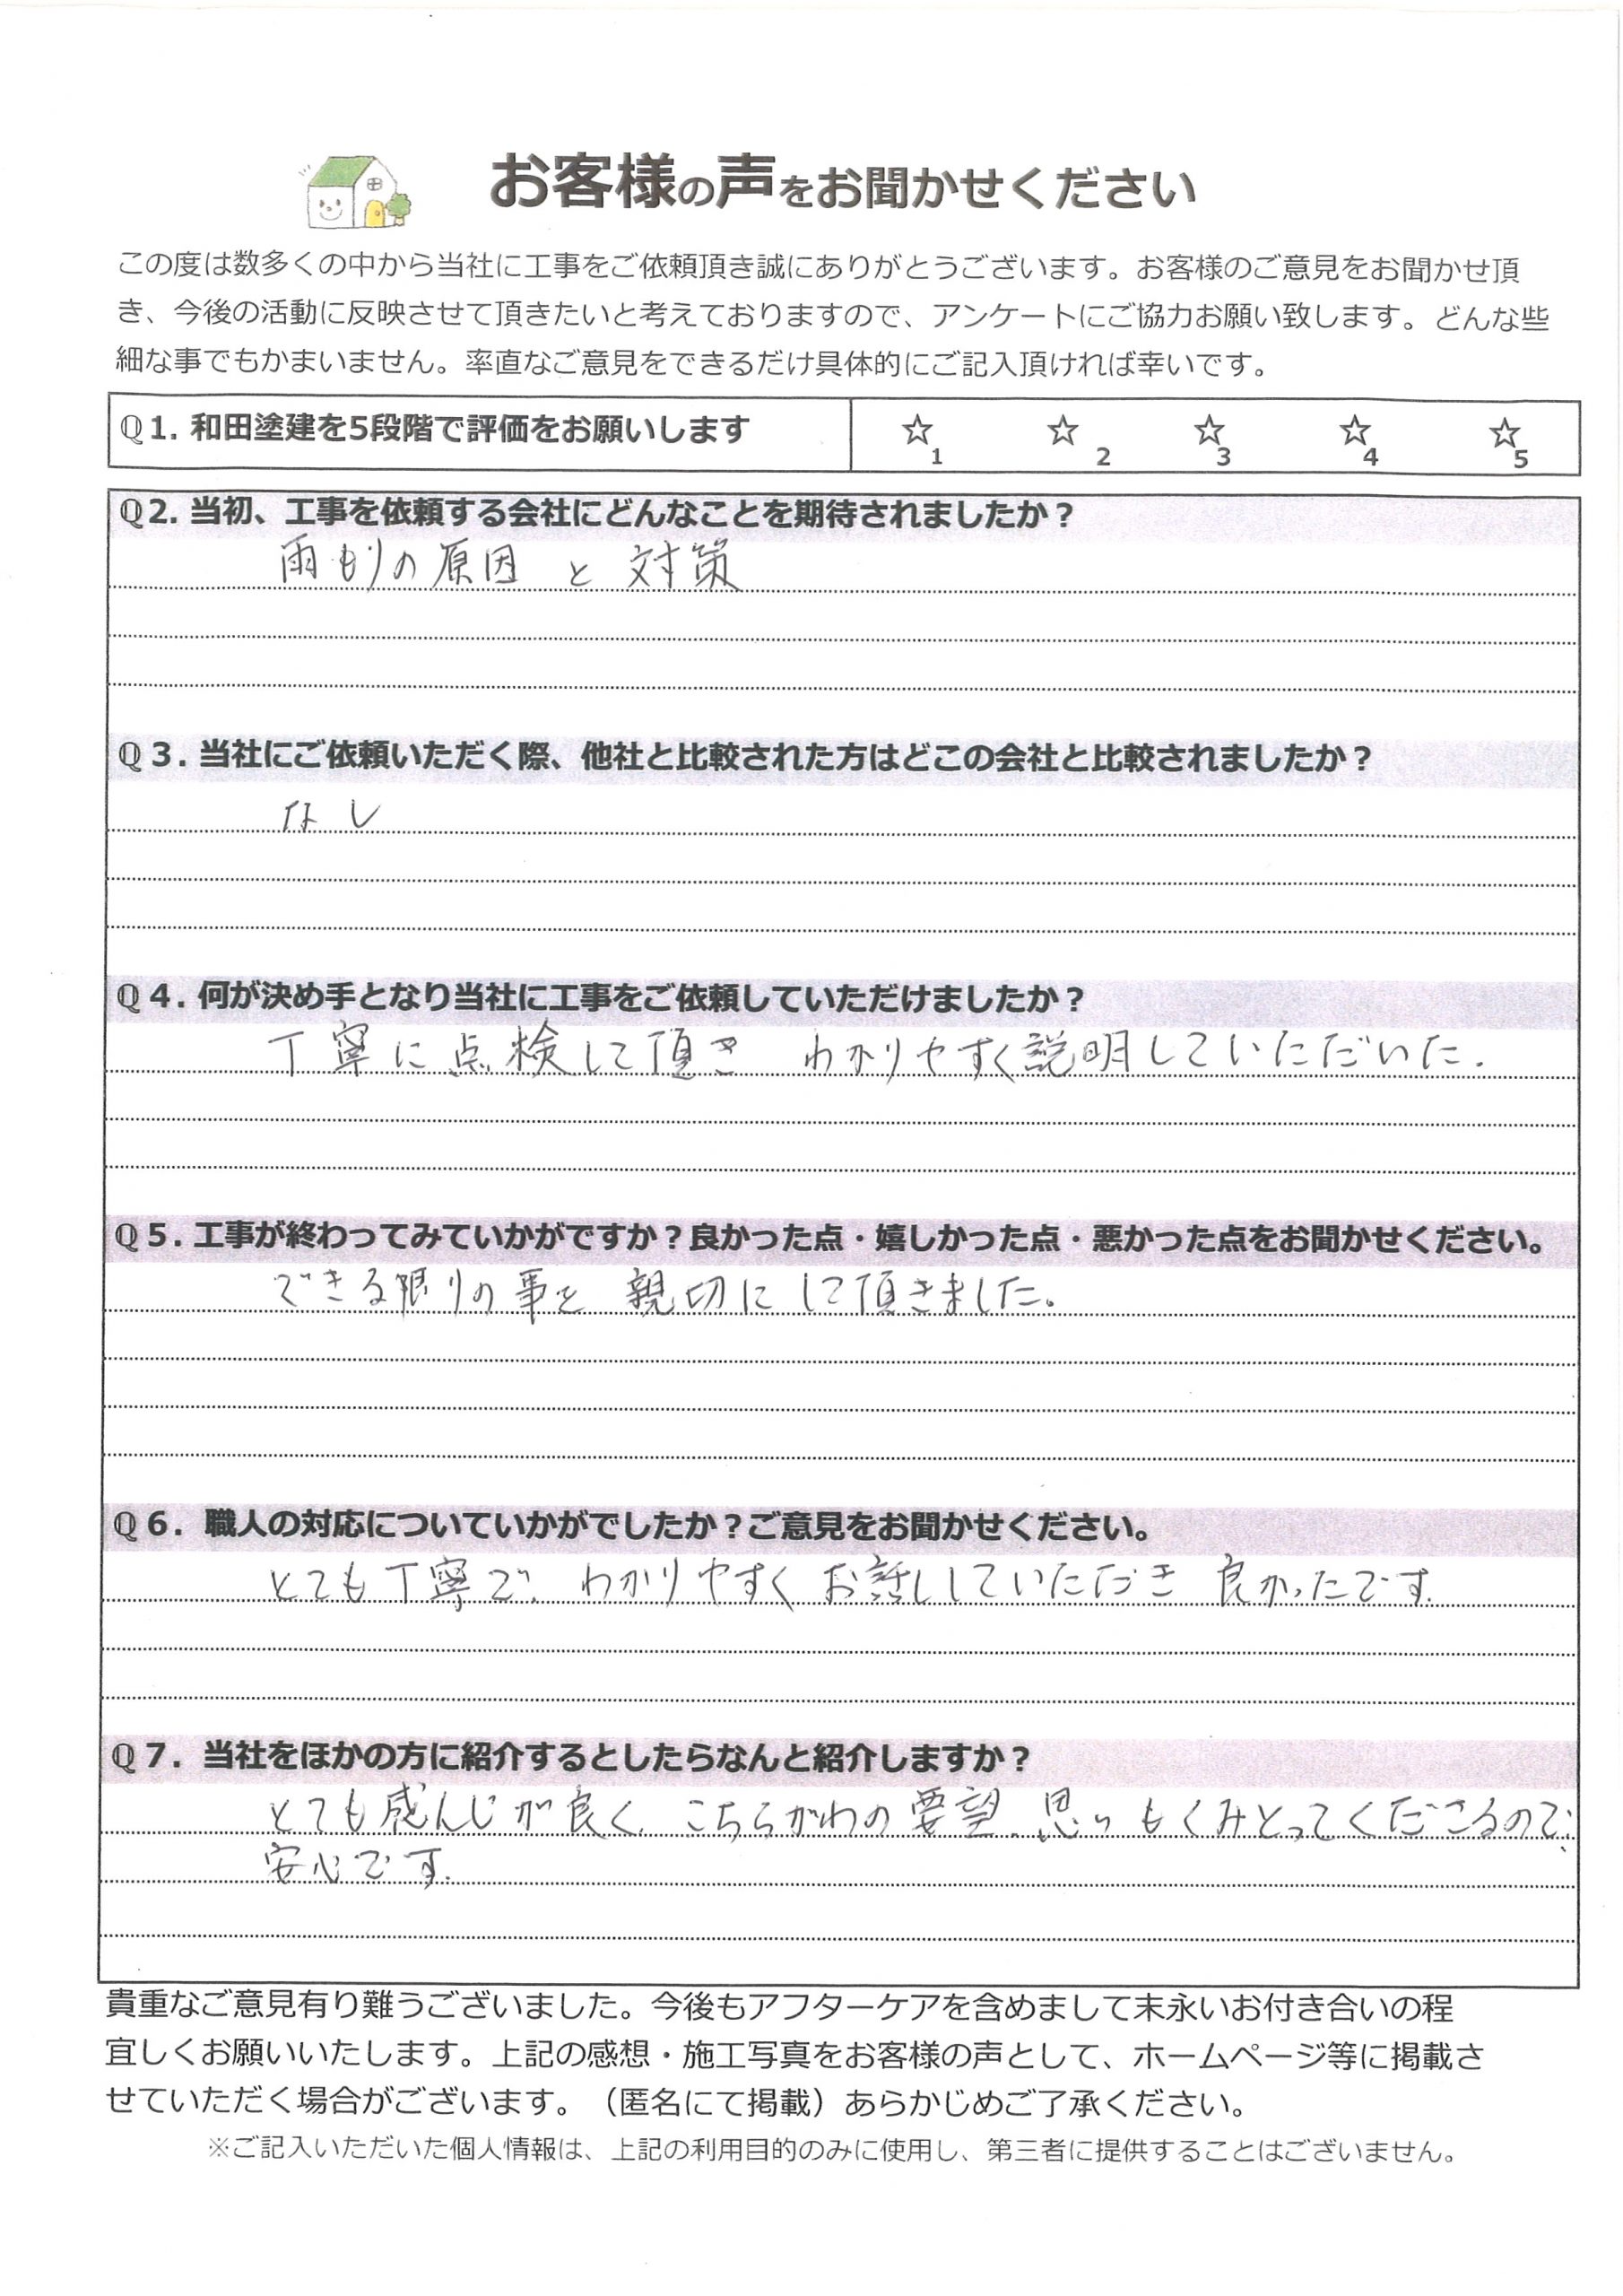 お客様の声をお聞かせください
この度は数多くの中から当社に工事をご依頼頂き誠にありがとうございます。お客様のご意見をお聞かせ頂
き、今後の活動に反映させて頂きたいと考えておりますので、アンケートにご協力お願い致します。どんな些
細な事でもかまいません。率直なご意見をできるだけ具体的にご記入頂ければ幸いです。
Q1. 和田塗建を5段階で評価をお願いします ☆1 ☆2 ☆3 ☆4 ☆5
Q2. 当初、工事を依頼する会社にどんなことを期待されましたか？
雨もりの原因 と 対策
Q３. 当社にご依頼いただく際、他社と比較された方はどこの会社と比較されましたか？
なし
Q４. 何が決め手となり当社に工事をご依頼していただけましたか？
丁寧に点検して頂き わかりやすく説明していただいた.
Q５. 工事が終わってみていかがですか？良かった点・嬉しかった点・悪かった点をお聞かせください。
できる限りの事を 親切にして頂きました。
Q６. 職人の対応についていかがでしたか？ご意見をお聞かせください。
とても丁寧で、わかりやすく お話ししていただき 良かったです.
Q７. 当社をほかの方に紹介するとしたらなんと紹介しますか？
とても感んじが良く、こちらがわの要望、思いもくみとってくださるので、
安心です.
貴重なご意見有り難うございました。今後もアフターケアを含めまして末永いお付き合いの程
宜しくお願いいたします。上記の感想・施工写真をお客様の声として、ホームページ等に掲載さ
せていただく場合がございます。（匿名にて掲載）あらかじめご了承ください。
※ご記入いただいた個人情報は、上記の利用目的のみに使用し、第三者に提供することはございません。